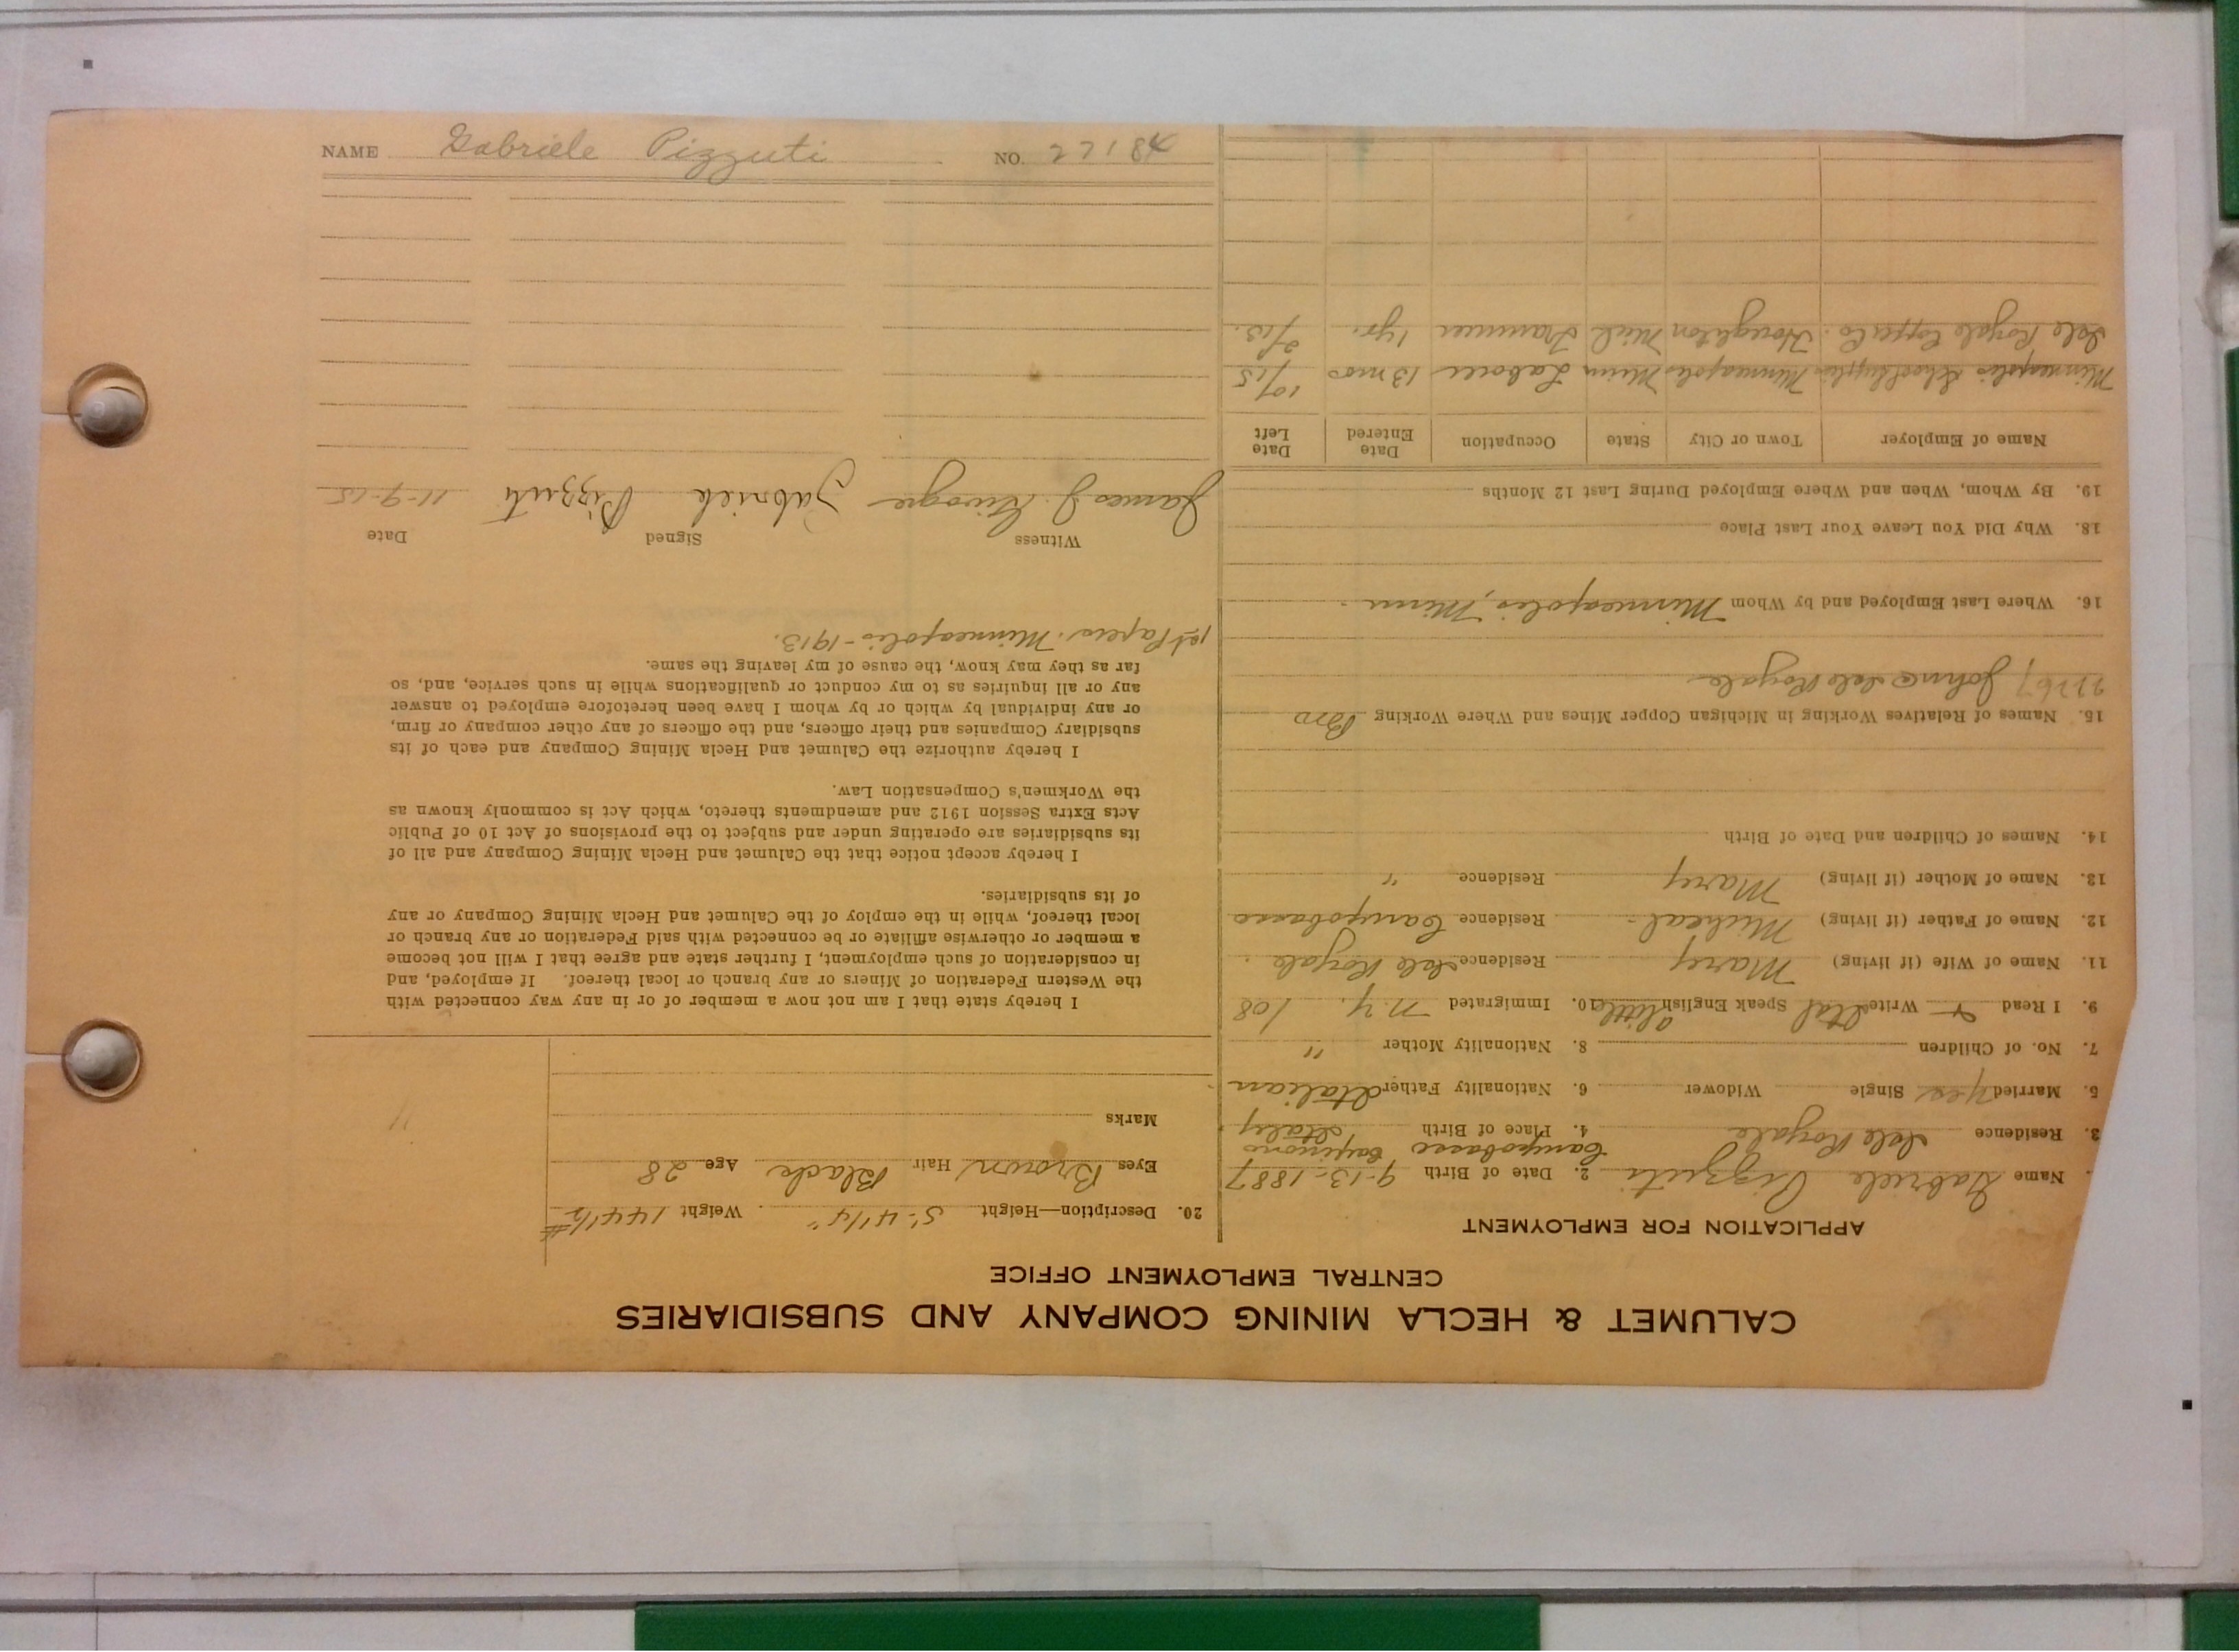 CALUMET & HECLA MINING COMPANY AND SUBSIDIARIES
CENTRAL EMPLOYMENT OFFICE
APPLICATION FOR EMPLOYMENT
Name Gabriele Pizzuti 2. Date of Birth 9-13-1887
3. Residence Isle Royale 4. Place of Birth Campobasso Italy
5. Married yes Single Widower 6. Nationality Father Italian
7. No. of Children 8. Nationality Mother "
9. I Read & Write Ital Speak English a little 10. Immigrated N.Y. 108
11. Name of Wife (if living) Mary Residence Isle Royale
12. Name of Father (if living) Micheal Residence Campobasso
13. Name of Mother (if living) Mary Residence "
14. Names of Children and Date of Birth
15. Names of Relatives Working in Michigan Copper Mines and Where Working Bro
22267 John @ Isle Royale
16. Where Last Employed and by Whom Minneapolis, Minn
18. Why Did You Leave Your Last Place
19. By Whom, When and Where Employed During Last 12 Months
Name of Employer Town or City State Occupation Date Entered Date Left
Minneapolis School Supplies Minneapolis Minn Laborer 13 mos 10/15
Isle Royale Copper Co. Houghton Mich Trammer 1 yr. 2/13.
20. Description—Height 5'-4 1/4" Weight 144 1/2 #
Eyes Brown Hair Black Age 28
Marks
I hereby state that I am not now a member of or in any way connected with
the Western Federation of Miners or any branch or local thereof. If employed, and
in consideration of such employment, I further state and agree that I will not become
a member or otherwise affiliate or be connected with said Federation or any branch or
local thereof, while in the employ of the Calumet and Hecla Mining Company or any
of its subsidiaries.
I hereby accept notice that the Calumet and Hecla Mining Company and all of
its subsidiaries are operating under and subject to the provisions of Act 10 of Public
Acts Extra Session 1912 and amendments thereto, which Act is commonly known as
the Workmen's Compensation Law.
I hereby authorize the Calumet and Hecla Mining Company and each of its
subsidiary Companies and their officers, and the officers of any other company or firm,
or any individual by which or by whom I have been heretofore employed to answer
any or all inquiries as to my conduct or qualifications while in such service, and, so
far as they may know, the cause of my leaving the same.
1st Papers. Minneapolis-1913.
Witness Signed Date
James J. Gabriele Pizzuti 11-9-15
NAME Gabriele Pizzuti NO. 22184